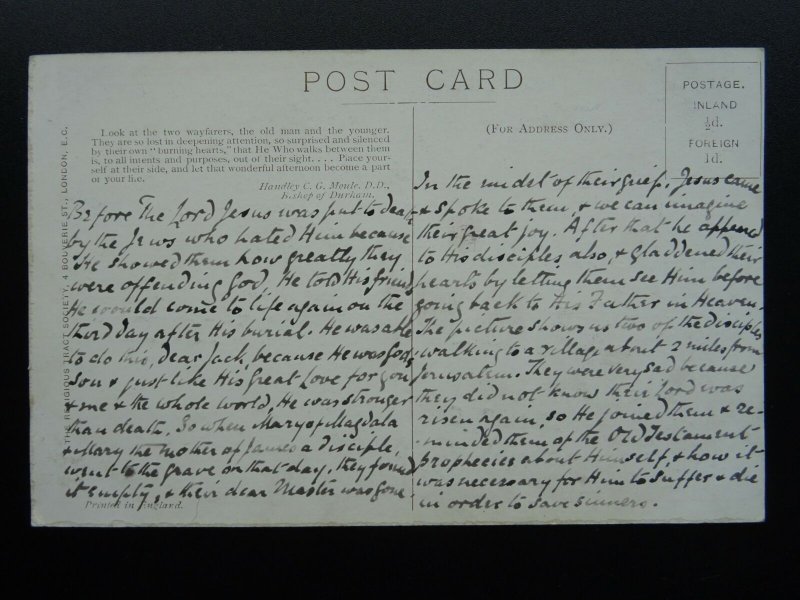 POST CARD
POSTAGE.
INLAND
½d.
FOREIGN
1d.
(FOR ADDRESS ONLY.)
Look at the two wayfarers, the old man and the younger.
They are so lost in deepening attention, so surprised and silenced
by their own "burning hearts," that He Who walks between them
is, to all intents and purposes, out of their sight. . . . Place your-
self at their side, and let that wonderful afternoon become a part
of your life.
Handley C. G. Moule, D.D.,
Bishop of Durham.
Before The Lord Jesus was put to death
by the Jews who hated Him because
He showed them how greatly they
were offending God, He told His friends
He would come to life again on the
third day after His burial. He was able
to do this, dear Jack, because He was God's
Son & just like His great Love for you
& me & the whole world, He was stronger
than death. So when Mary of Magdala
& Mary the mother of James a disciple,
went to the grave on that day, they found
it empty, & their dear Master was gone.
In the midst of their grief, Jesus came
& spoke to them, & we can imagine
their great joy. After that he appeared
to His disciples also, & gladdened their
hearts by letting them see Him before
going back to His Father in Heaven.
The picture shows us two of the disciples
walking to a village about 2 miles from
Jerusalem. They were very sad because
they did not know their Lord was
risen again, so He joined them & re-
minded them of the Old Testament
prophecies about Himself, & how it
was necessary for Him to suffer & die
in order to save sinners.
Printed in England.
THE RELIGIOUS TRACT SOCIETY, 4 BOUVERIE ST., LONDON, E.C.